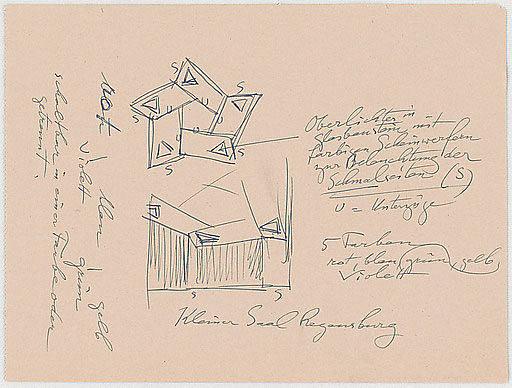 S
S
S
S
U
U
U
U
Oberlichter in
Glasbaustein mit
farbigen Scheinwerfern
zur Beleuchtung der
Schmalseiten (S)
U = Unterzüge
5 Farben
rot, blau, grün, gelb,
Violett
S
S
Kleiner Saal Regensburg
rot blau gelb
Violett grün
schaltbar in einer Farbe oder
getrennt.